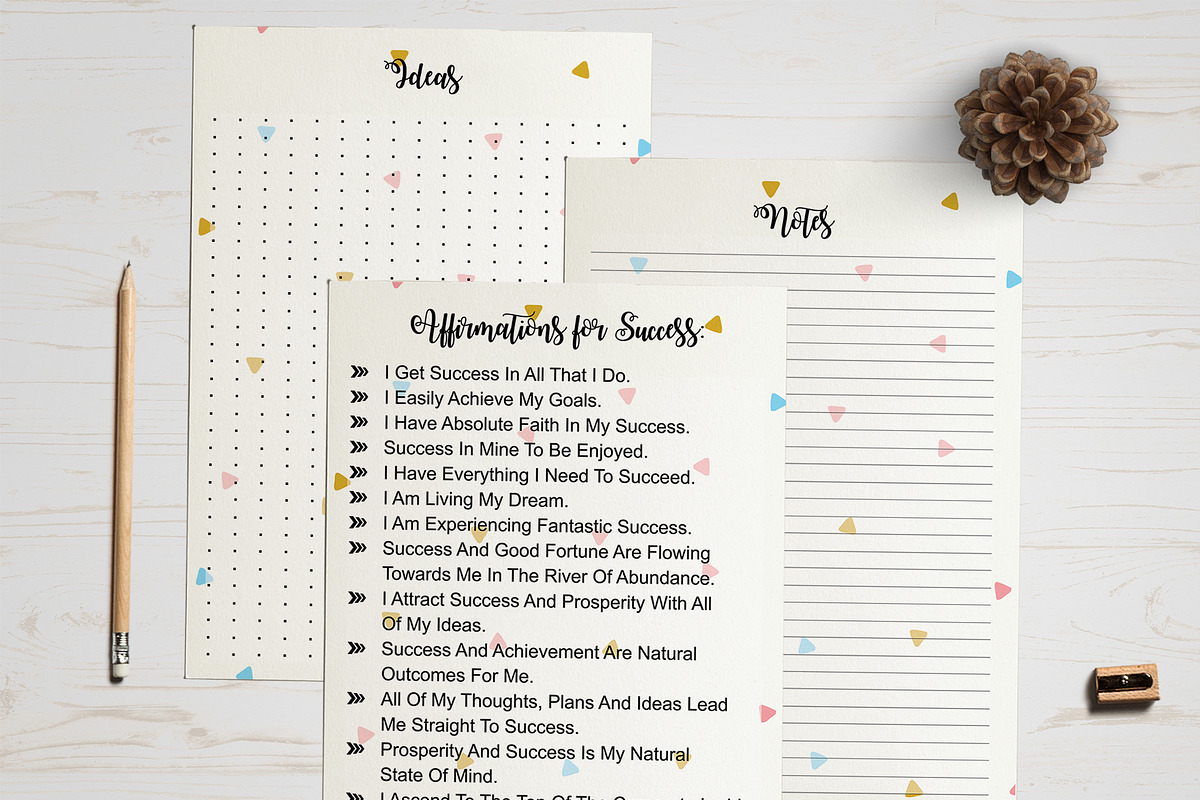 Ideas
Notes
Affirmations for Success:
I Get Success In All That I Do.
I Easily Achieve My Goals.
I Have Absolute Faith In My Success.
Success In Mine To Be Enjoyed.
I Have Everything I Need To Succeed.
I Am Living My Dream.
I Am Experiencing Fantastic Success.
Success And Good Fortune Are Flowing
Towards Me In The River Of Abundance.
I Attract Success And Prosperity With All
Of My Ideas.
Success And Achievement Are Natural
Outcomes For Me.
All Of My Thoughts, Plans And Ideas Lead
Me Straight To Success.
Prosperity And Success Is My Natural
State Of Mind.
I Ascend To The Top Of The